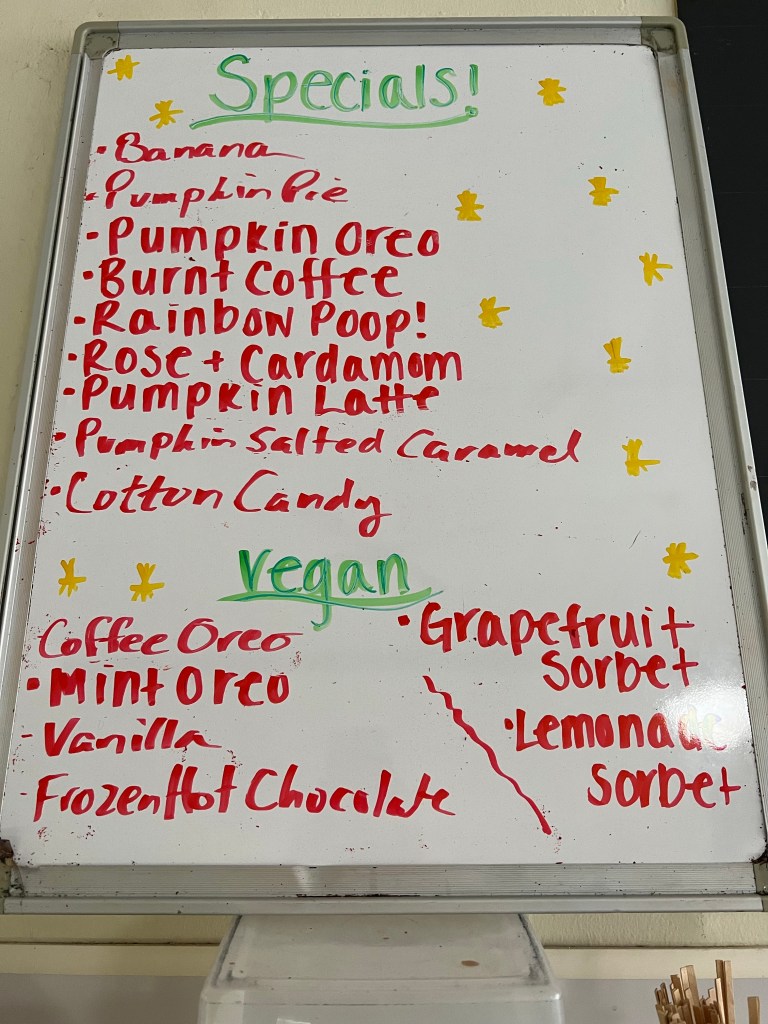 Specials!
· Banana
· Pumpkin Pie
· Pumpkin Oreo
· Burnt Coffee
· Rainbow Poop!
· Rose + Cardamom
· Pumpkin Latte
· Pumpkin Salted Caramel
· Cotton Candy
vegan
Coffee Oreo
· Mint Oreo
- Vanilla
- Frozen Hot Chocolate
· Grapefruit
Sorbet
· Lemonade
Sorbet